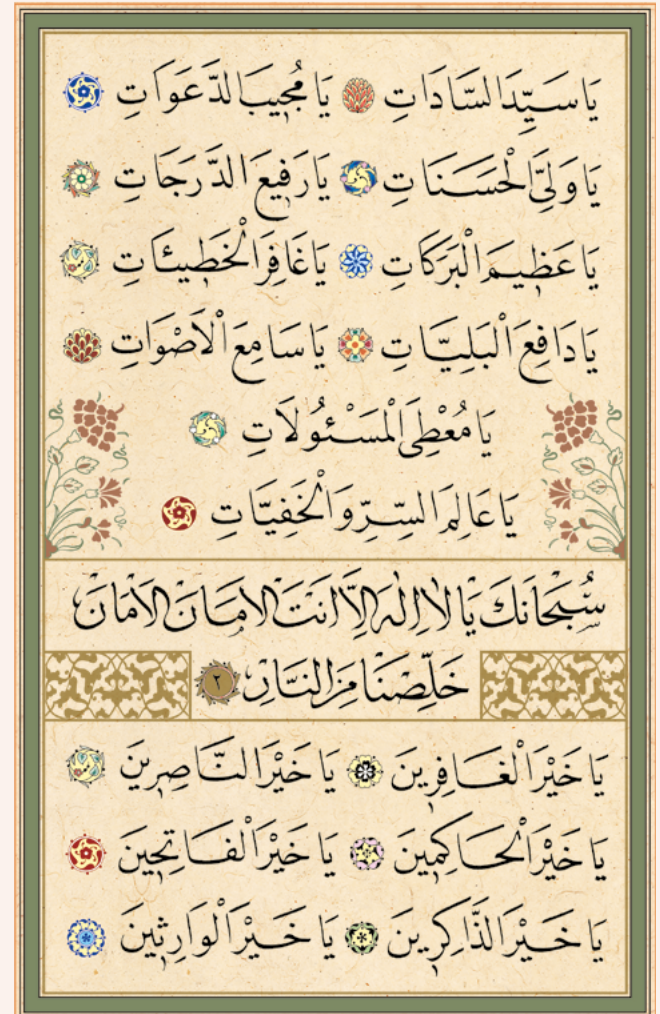 يَا سَيِّدَ السَّادَاتِ يَا مُجِيبَ الدَّعَوَاتِ
يَا وَلِيَّ الْحَسَنَاتِ يَا رَفِيعَ الدَّرَجَاتِ
يَا عَظِيمَ الْبَرَكَاتِ يَا غَافِرَ الْخَطِيئَاتِ
يَا دَافِعَ الْبَلِيَّاتِ يَا سَامِعَ الْاَصْوَاتِ
يَا مُعْطِيَ الْمَسْئُولَاتِ
يَا عَالِمَ السِّرِّ وَالْخَفِيَّاتِ
سُبْحَانَكَ يَا لَا اِلٰهَ اِلَّا اَنْتَ الْاَمَانَ الْاَمَانَ
خَلِّصْنَا مِنَ النَّارِ ٢
يَا خَيْرَ الْغَافِرِينَ يَا خَيْرَ النَّاصِرِينَ
يَا خَيْرَ الْحَاكِمِينَ يَا خَيْرَ الْفَاتِحِينَ
يَا خَيْرَ الذَّاكِرِينَ يَا خَيْرَ الْوَارِثِينَ